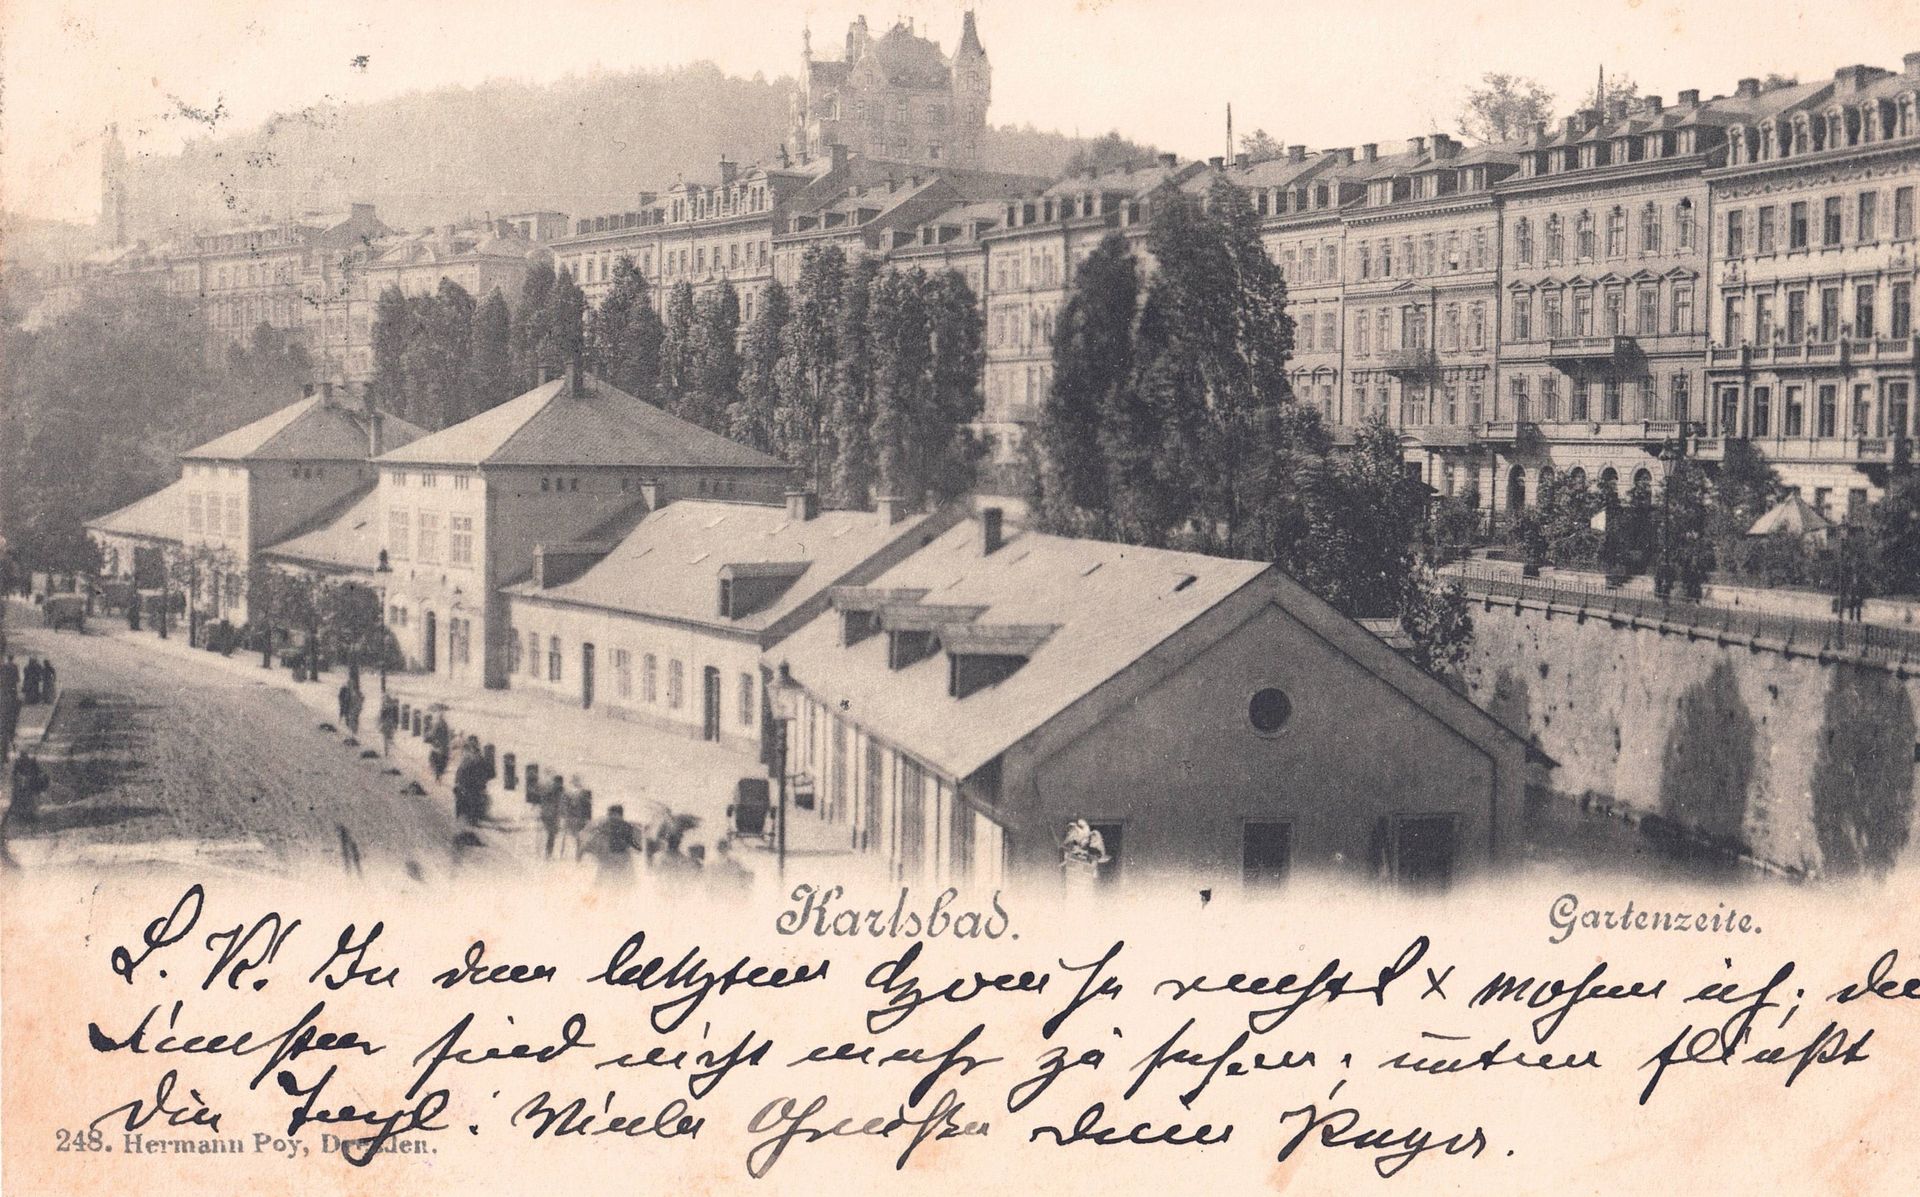 Karlsbad.
Gartenzeite.
L. K! In dem letzten Hause rechts x wohne ich; die
Fenster sind nicht mehr zu sehen; unten fließt
die Tepl. Viele Grüße dein
248. Hermann Poy, Dresden.